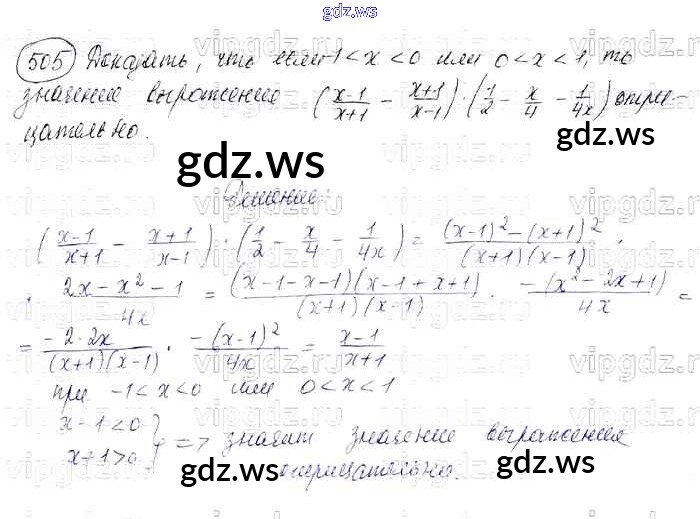 gdz.ws
505 Доказать, что если -1 < x < 0 или 0 < x < 1, то
значение выражения (x-1/x+1 - x+1/x-1) : (1/2 - x/4 - 1/4x) отри-
цательно.
gdz.ws
Решение:
(x-1/x+1 - x+1/x-1) : (1/2 - x/4 - 1/4x) = (x-1)² - (x+1)²/(x+1)(x-1) :
: 2x - x² - 1/4x = (x-1-x-1)(x-1+x+1)/(x+1)(x-1) · -(x² - 2x + 1)/4x =
gdz.ws
= -2·2x/(x+1)(x-1) · -(x-1)²/4x = x-1/x+1
при -1 < x < 0 или 0 < x < 1
x-1 < 0
x+1 > 0 } => значит значение выражения
отрицательно.
gdz.ws